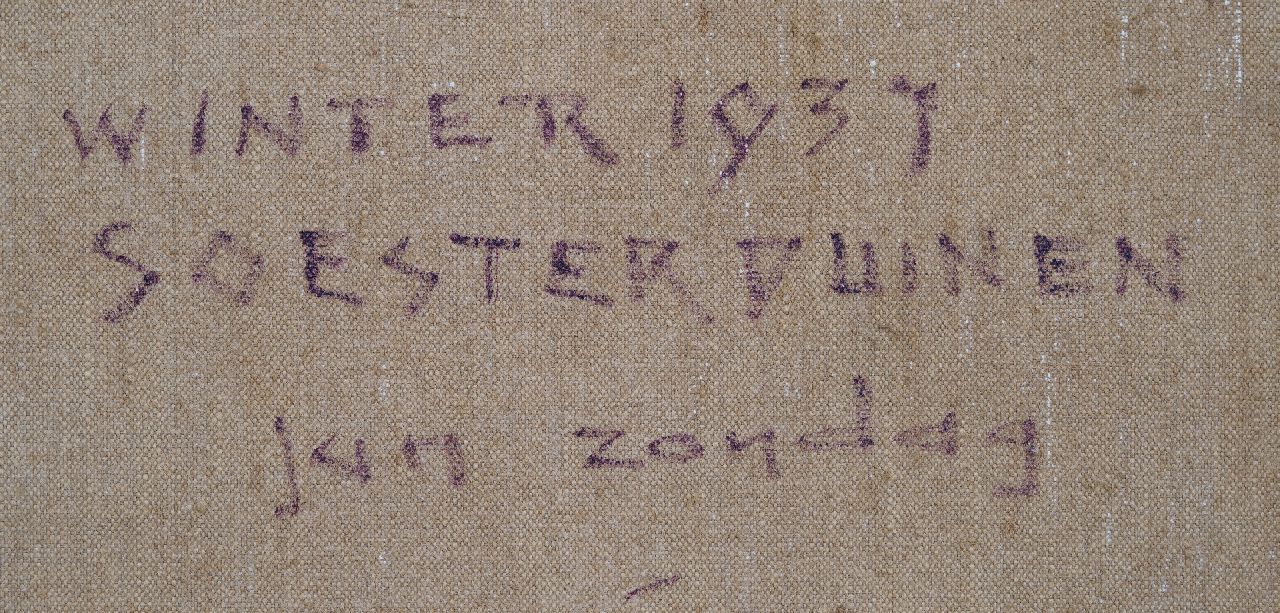 WINTER 1937
SOESTER DUINEN
jan zondag